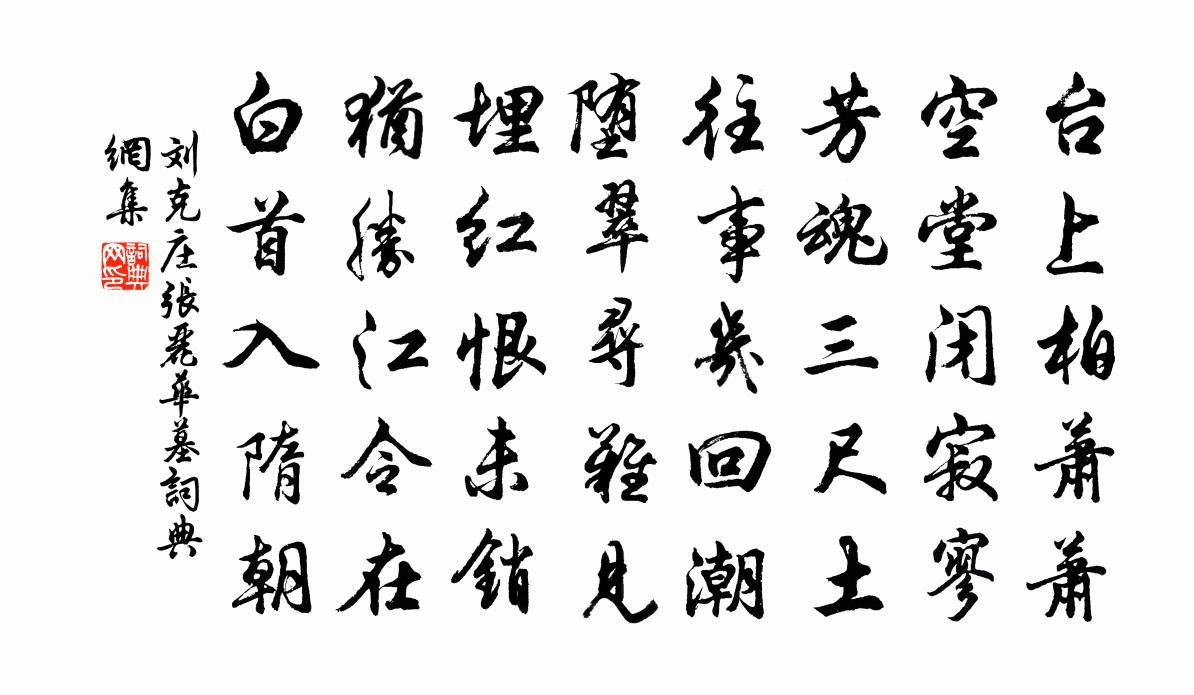 台上柏萧萧
空堂闭寂寥
芳魂三尺土
往事几回潮
堕翠寻难见
埋红恨未销
犹胜江令在
白首入隋朝
刘克庄張麗華墓詞典
網集
詞典网印